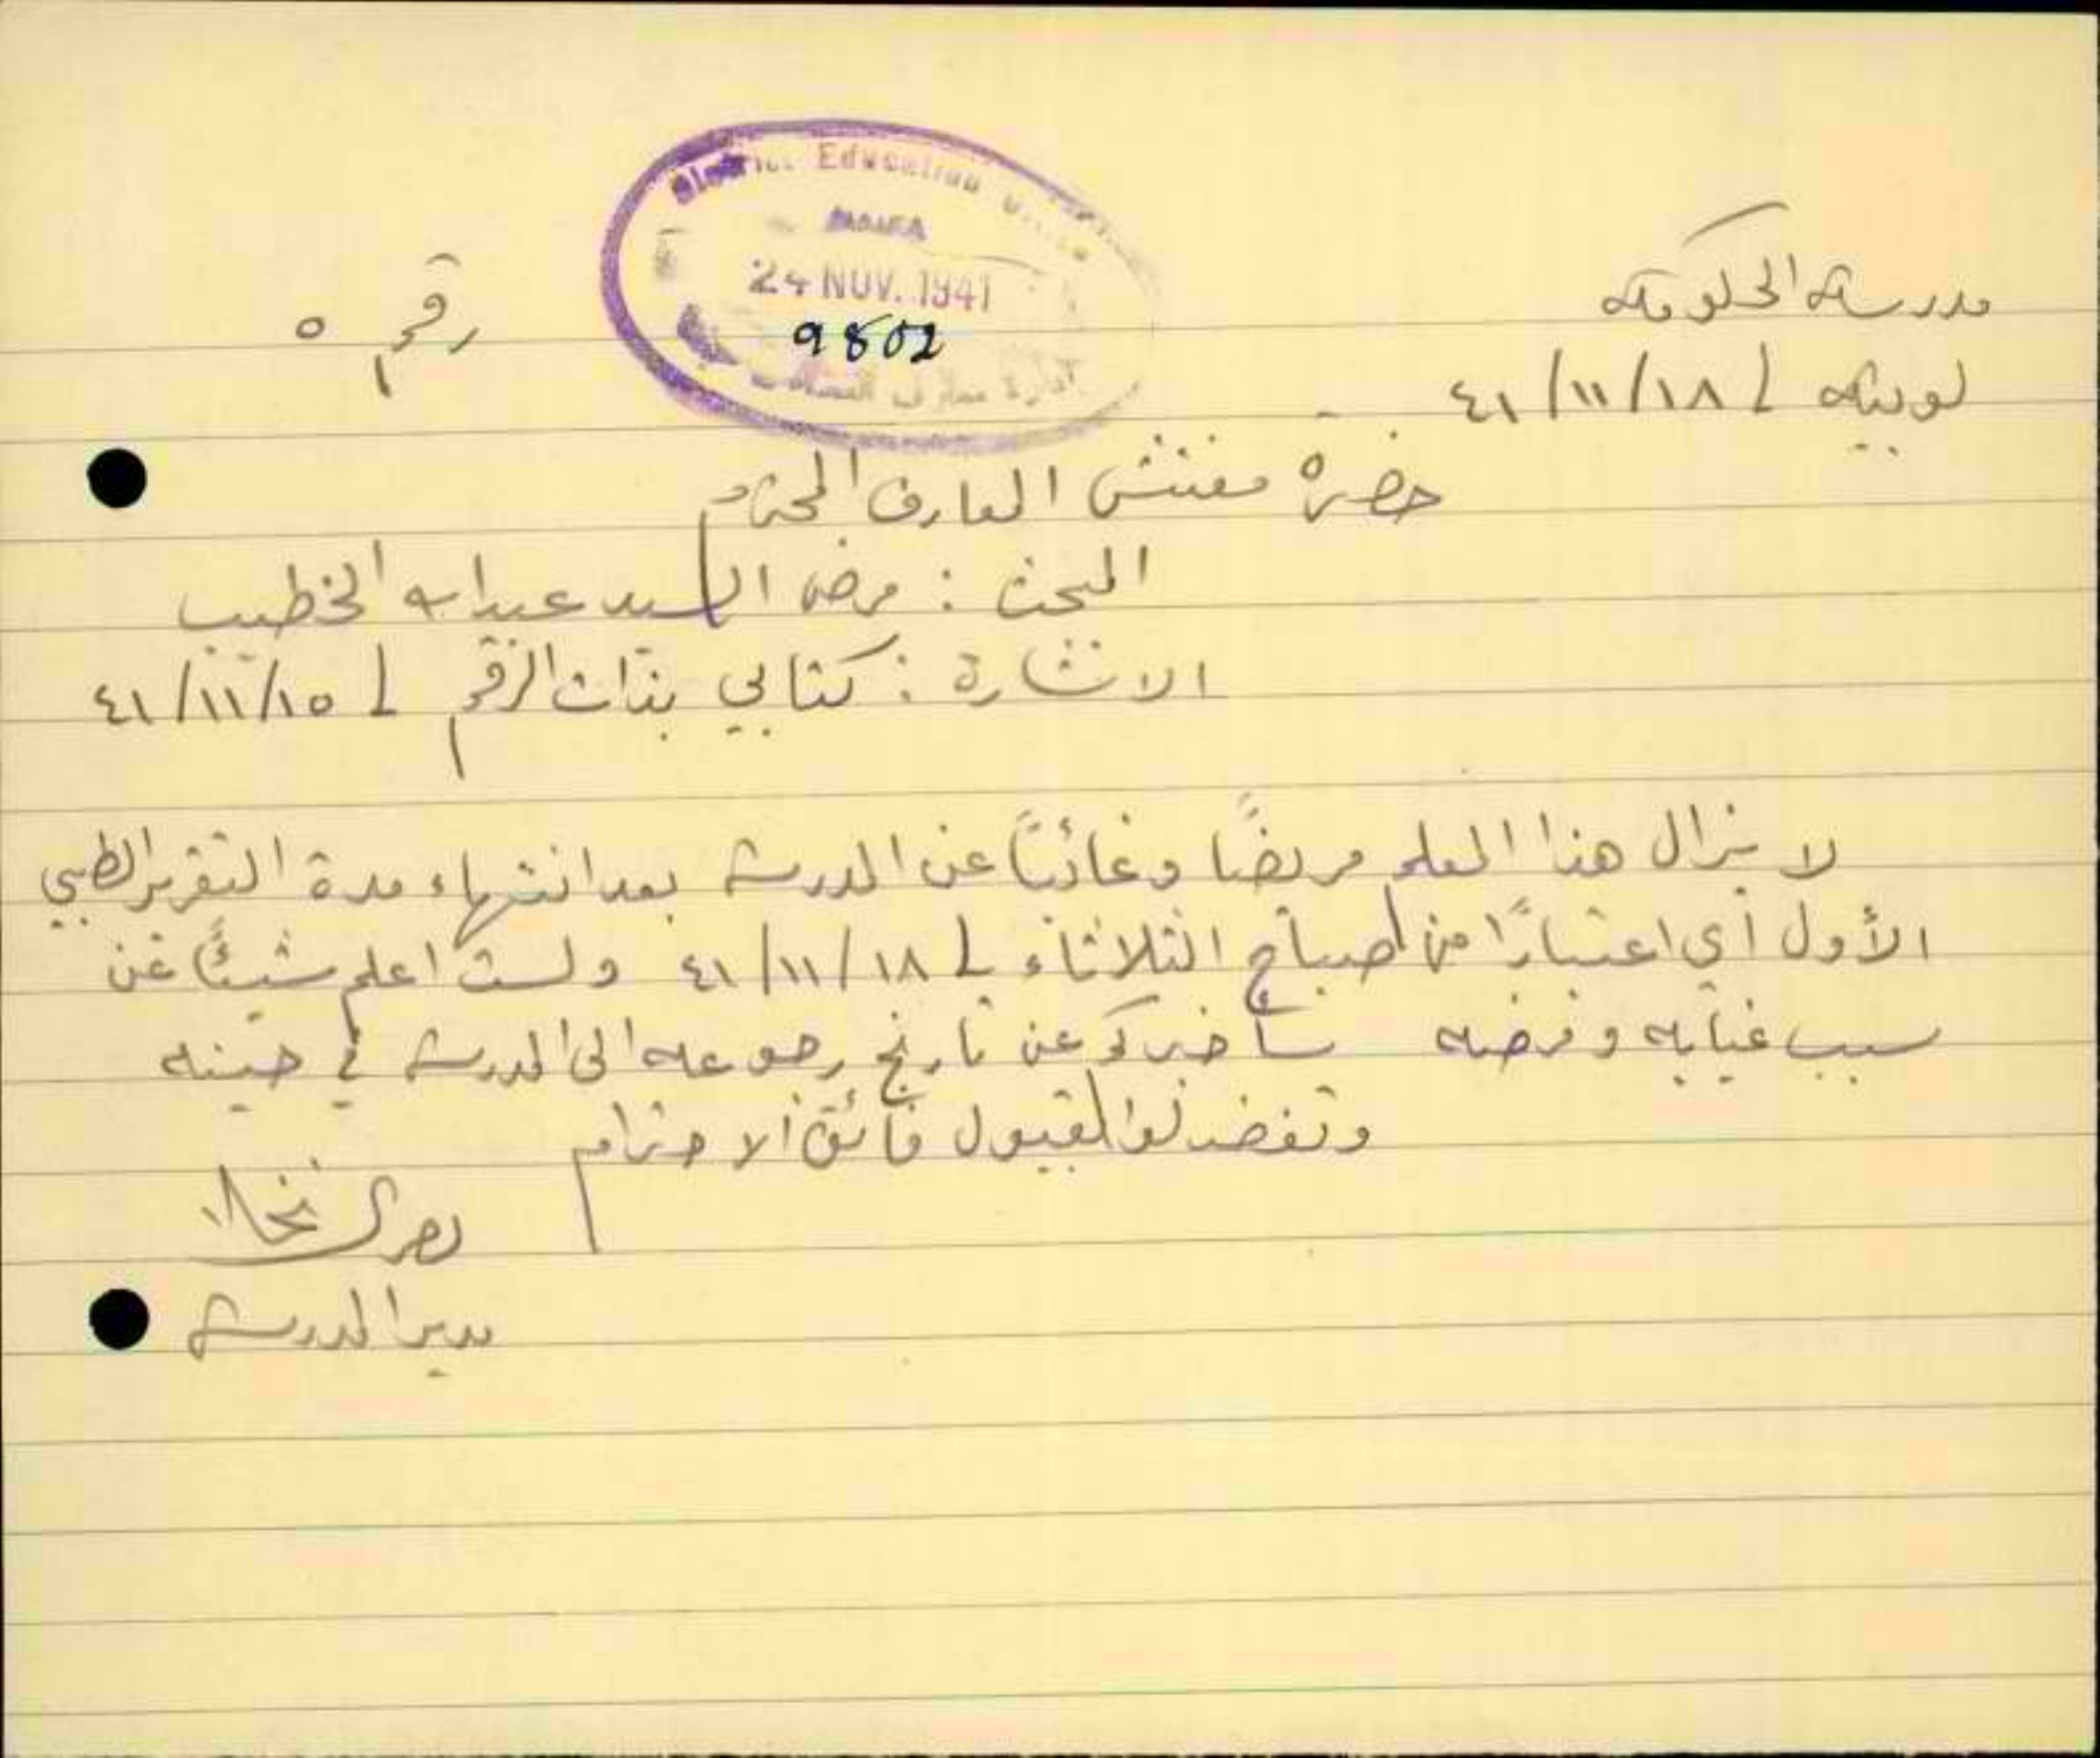 District Education Office
HAIFA
24 NOV. 1941
9802
ادارة معارف
مدرسة الحكومة
رقم ٥
لوبيه في ٤١/١١/١٨
حضرة مفتش المعارف المحترم
البحث : مرض السيد عبدالله الخطيب
الاشارة : كتابي بذات الرقم في ٤١/١١/١٥
لا يزال هذا المعلم مريضًا وغائبًا عن المدرسة بعد انتهاء مدة التقرير الطبي
الأول أي اعتبارًا من صباح الثلاثاء في ٤١/١١/١٨ ولست اعلم شيئًا عن
سبب غيابه ومرضه سأخبركم عن تاريخ رجوعه الى المدرسة في حينه
وتفضلوا بقبول فائق الاحترام
مدير المدرسة